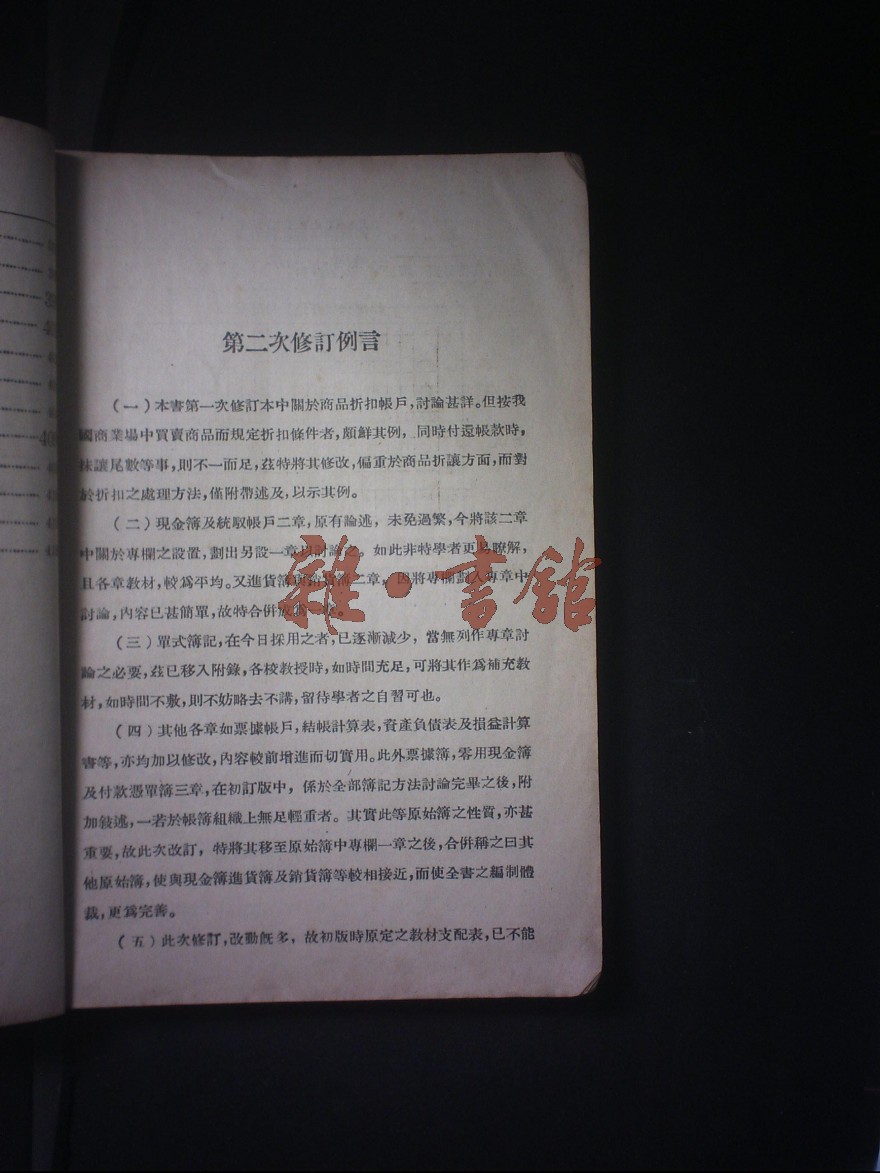 第二次修訂例言
(一)本書第一次修訂本中關於商品折扣帳戶,討論甚詳。但按我
國商業場中買賣商品而規定折扣條件者,頗鮮其例,同時付還帳款時,
抹讓尾數等事,則不一而足,茲特將其修改,偏重於商品折讓方面,而對
於折扣之處理方法,僅附帶述及,以示其例。
(二)現金簿及統馭帳戶二章,原有論述,未免過繁,今將該二章
中關於專欄之設置,劃出另設一章以討論之。如此非特學者更易瞭解,
且各章教材,較爲平均。又進貨簿與銷貨簿二章,因將專欄劃入專章中
討論,內容已甚簡單,故特合併成爲一章。
(三)單式簿記,在今日採用之者,已逐漸減少,當無列作專章討
論之必要,茲已移入附錄,各校教授時,如時間充足,可將其作爲補充教
材,如時間不敷,則不妨略去不講,留待學者之自習可也。
(四)其他各章如票據帳戶,結帳計算表,資產負債表及損益計算
書等,亦均加以修改,內容較前增進而切實用。此外票據簿,零用現金簿
及付款憑單簿三章,在初訂版中,係於全部簿記方法討論完畢之後,附
加敍述,一若於帳簿組織上無足輕重者。其實此等原始簿之性質,亦甚
重要,故此次改訂,特將其移至原始簿中專欄一章之後,合併稱之曰其
他原始簿,使與現金簿進貨簿及銷貨簿等較相接近,而使全書之編制體
裁,更爲完善。
(五)此次修訂,改動旣多,故初版時原定之教材支配表,已不能
雜·書館